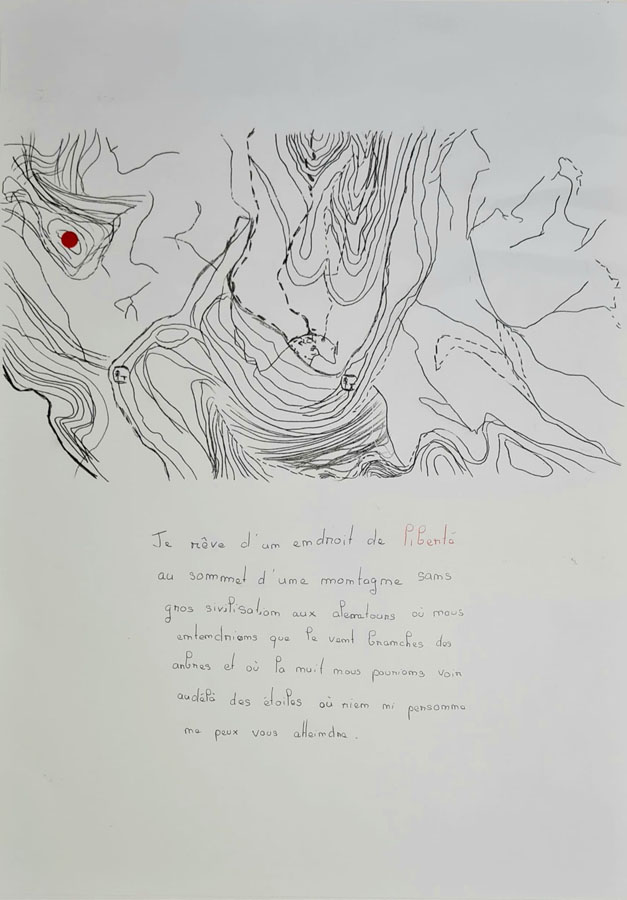 Je rêve d'un endroit de liberté
au sommet d'une montagne sans
gros sivilisation aux alentours où nous
entendrions que le vent branches des
arbres et où la nuit nous pourions voir
audélà des étoiles où rien ni personne
ne peux vous atteindre.